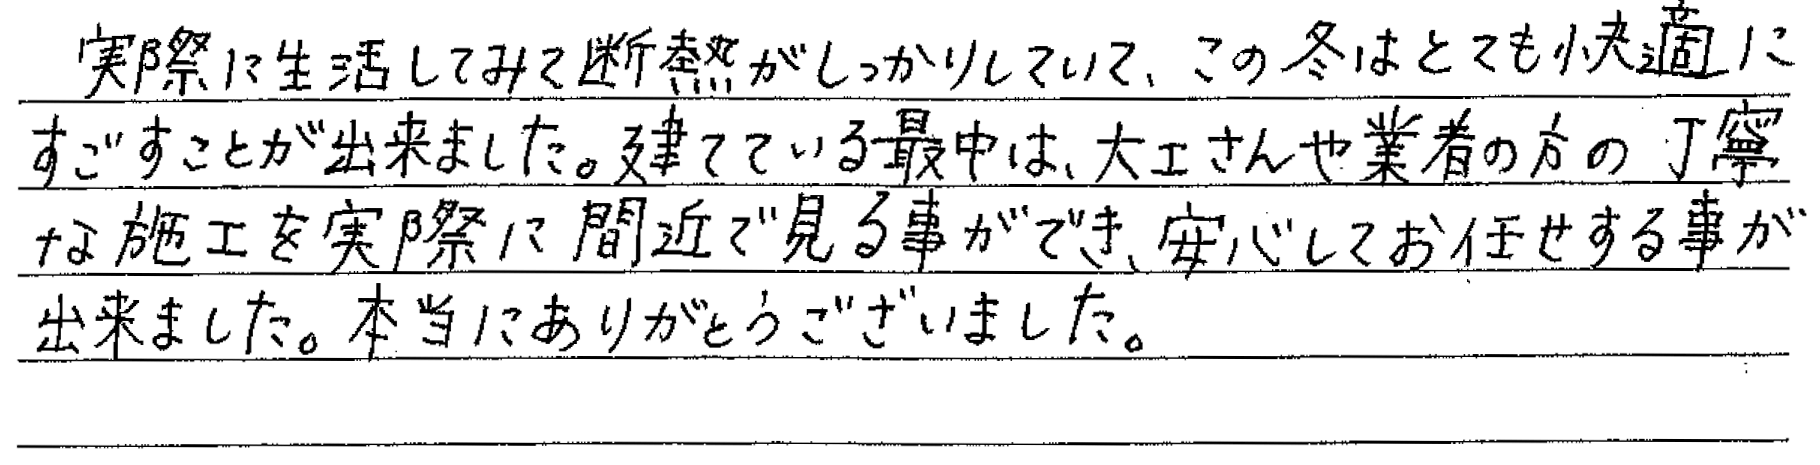 実際に生活してみて断熱がしっかりしていて、この冬はとても快適に
すごすことが出来ました。建てている最中は、大工さんや業者の方の丁寧
な施工を実際に間近で見る事ができ、安心してお任せする事が
出来ました。本当にありがとうございました。